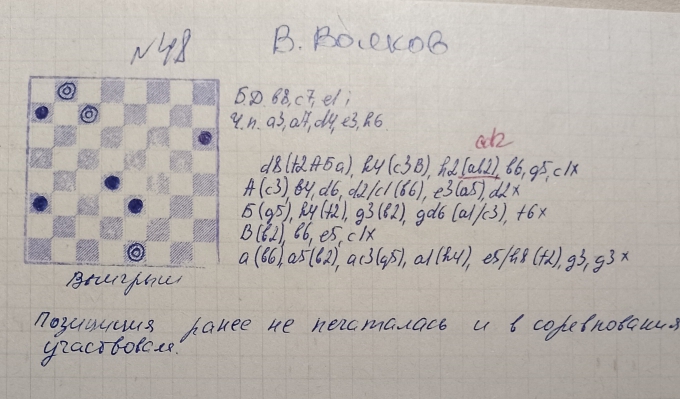 N48 В. Волков
Б.Д. b8, c7, e1;
Ч.п. a3, a7, d4, e3, h6
ad2
d8 (f2АБа), h4 (c3В), h2 (ab2), b6, g5, c1x
А (c3), b4, d6, d2/c1 (b6), e3 (a5), d2x
Б (g5), h4 (f2), g3 (b2), gd6 (a1/c3), f6x
В (b2), b6, e5, c1x
а (b6), a5 (b2), ac3 (g5), a1 (h4), e5/h8 (f2), g3, g3x
Выигрыш
Позиция ранее не печаталась и в соревнования
участвовал.